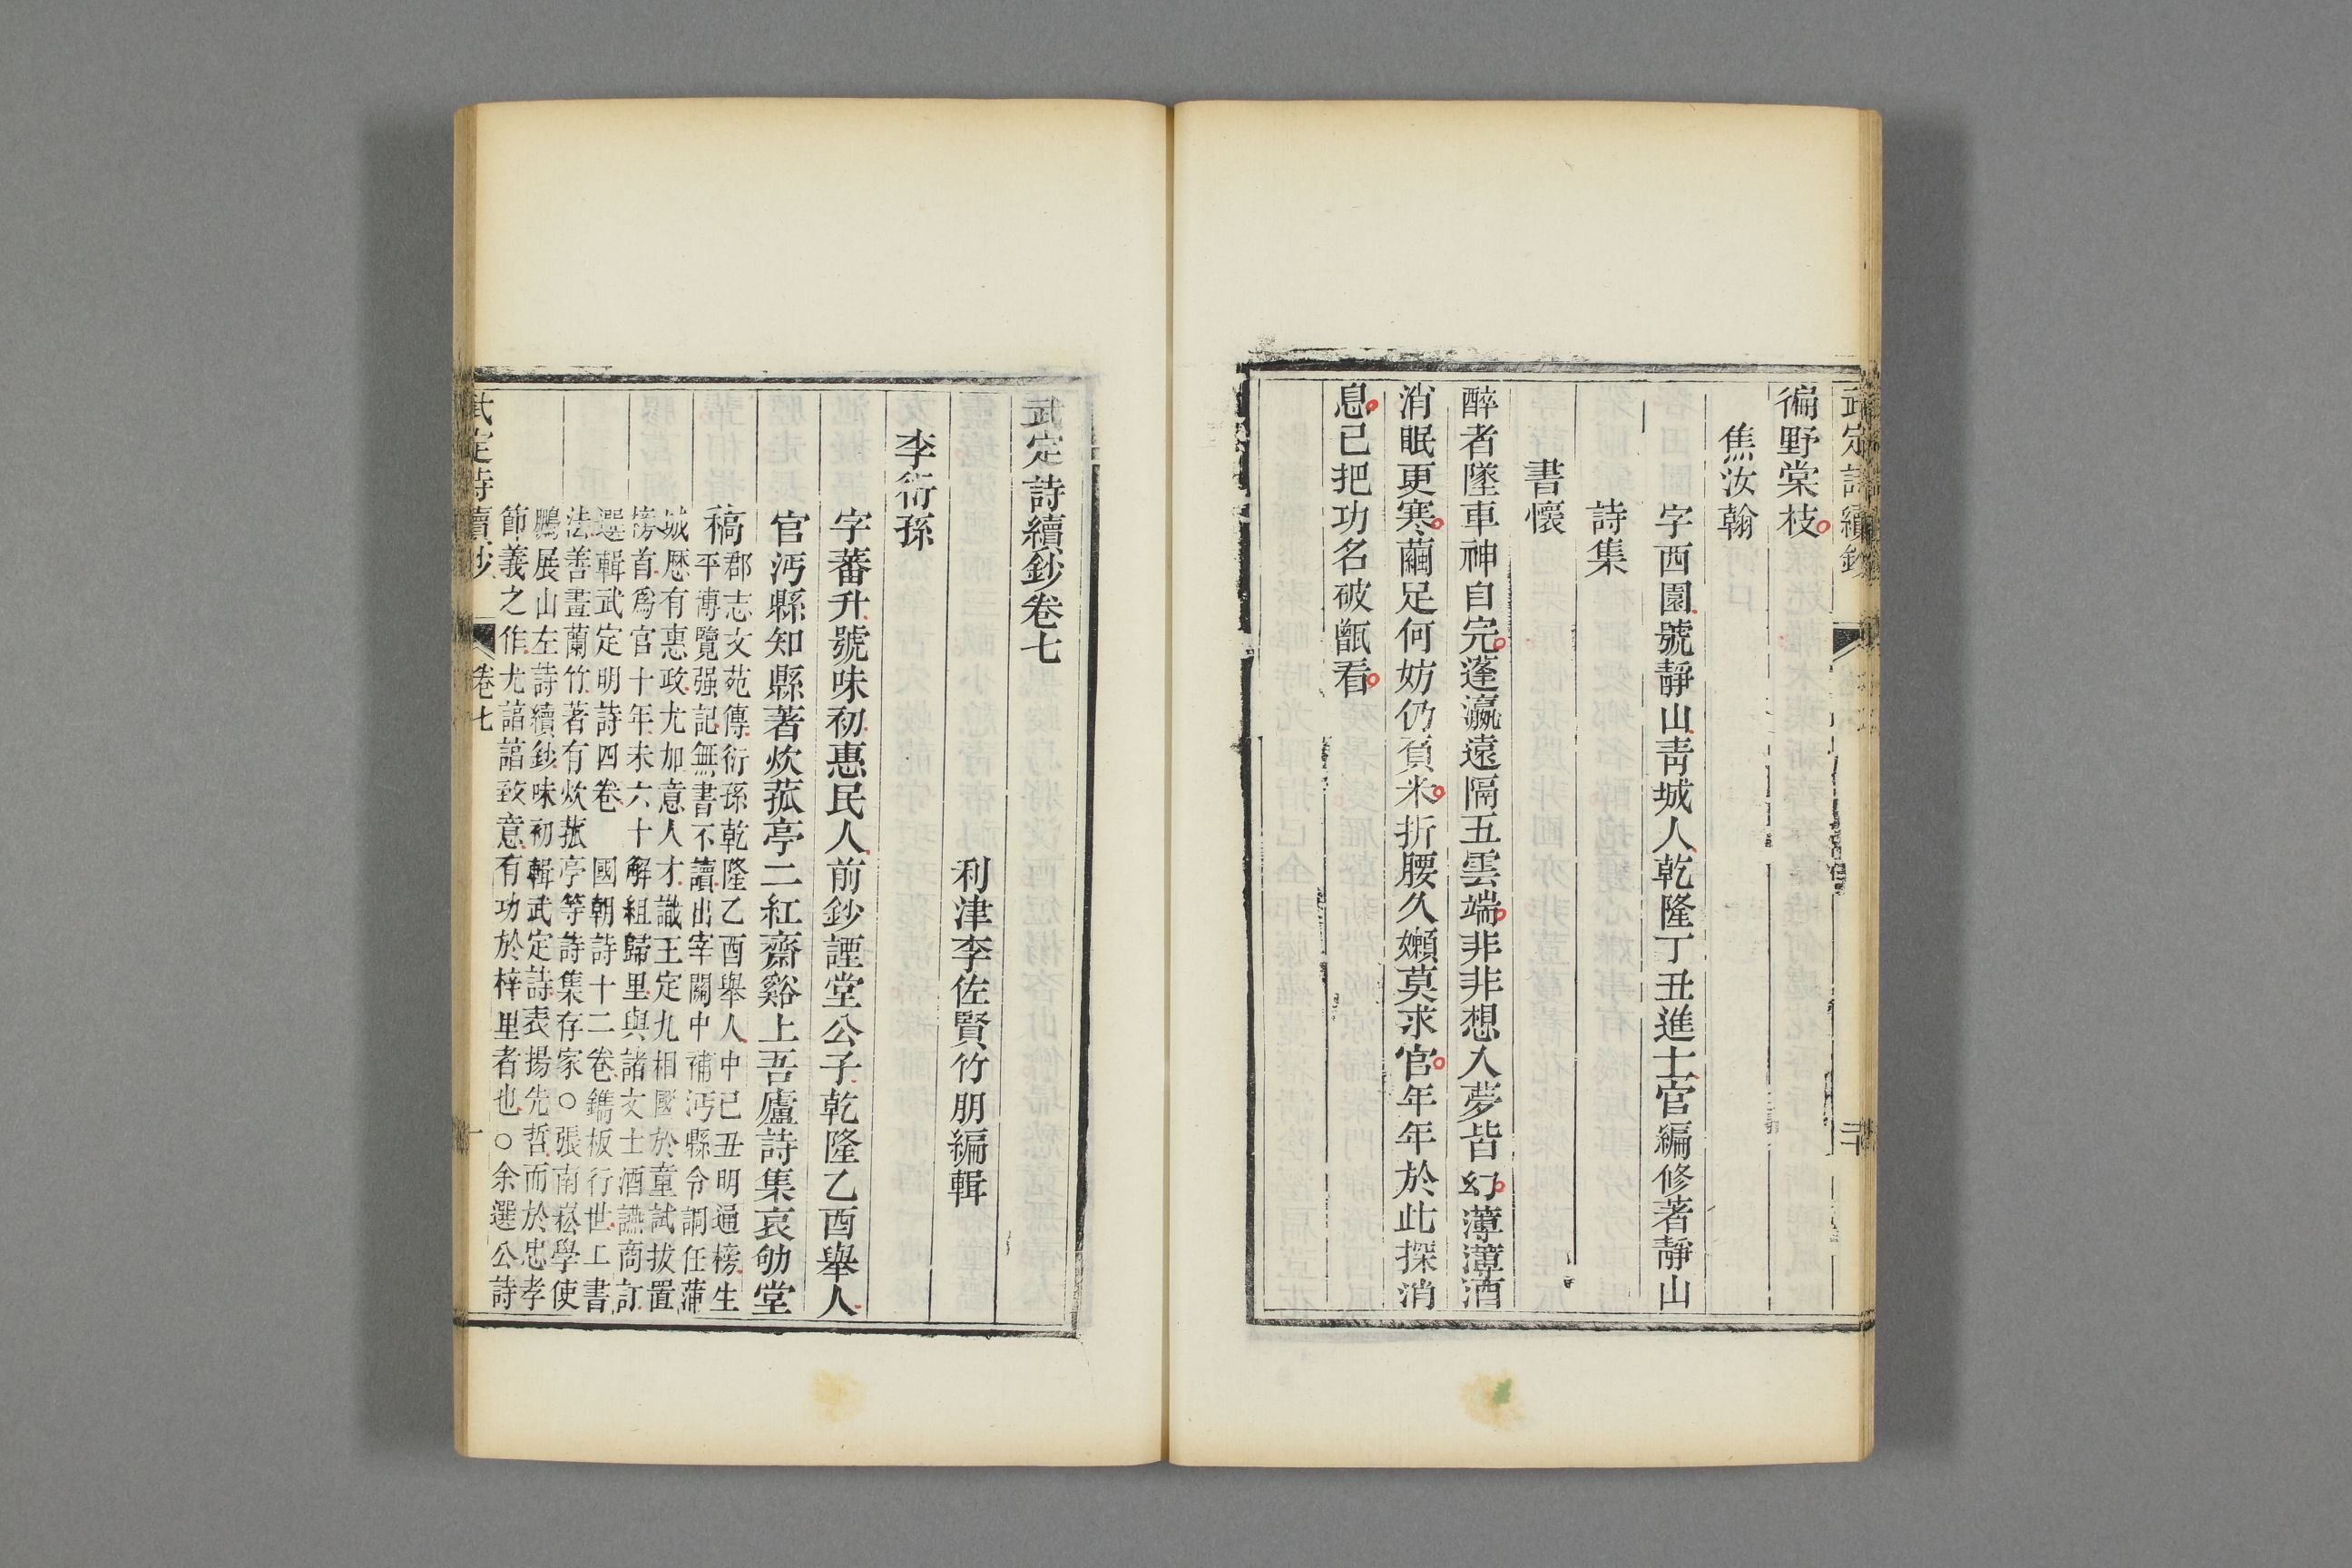 武定詩續鈔
二十
徧野棠枝
焦汝翰
字西園號靜山靑城人乾隆丁丑進士官編修著靜山
詩集
書懷
醉者墜車神自完蓬瀛遠隔五雲端非非想人夢皆幻薄薄酒
消眠更寒繭足何妨仍負米折腰久嬾莫求官年年於此探消
息已把功名破甑看
武定詩續鈔卷七
利津李佐賢竹朋編輯
李衍孫
字蕃升號味初惠民人前鈔謹堂公子乾隆乙酉舉人
官沔縣知縣著炊菰亭二紅齋谿上吾廬詩集哀劬堂
稿
郡志文苑傳衍孫乾隆乙酉舉人中己丑明通榜生
平博覽强記無書不讀出宰關中補沔縣令調任蒲
城歷有惠政尤加意人才識王定九相國於童試拔置
榜首爲官十年未六十解組歸里與諸文士酒讌商訂
選輯武定明詩四卷 國朝詩十二卷鐫板行世工書
法善畫蘭竹著有炊菰亭等詩集存家○張南崧學使
鵬展山左詩續鈔味初輯武定詩表揚先哲而於忠孝
節義之作尤諳諳致意有功於梓里者也○余選公詩
武定詩續鈔
卷七
一